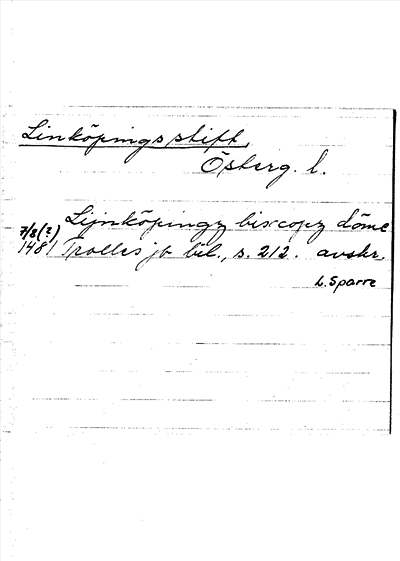 Linköpings stift,
Österg. l.
7/8(?) Lijnköpingz biscopz döme
1481 Trolles jb bil., s. 212. avskr.
L. Sparre